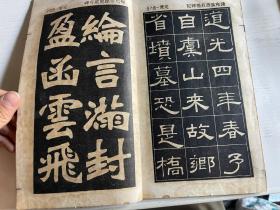 道光四年春予
自虞山來故鄉
省墳墓恐是橋
綸言滿封
盈函雲飛